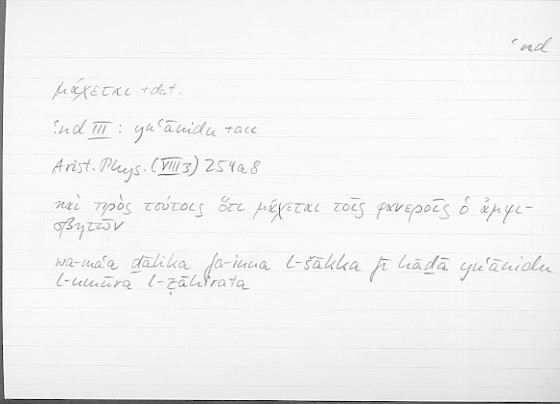 ʿnd
μάχεται + dat.
ʿnd III : yuʿānidu + acc
Arist. Phys. (VIII 3) 254a8
καὶ πρὸς τούτοις ὅτι μάχεται τοῖς φανεροῖς ὁ ἀμφι-
σβητῶν
wa-maʿa ḏālika fa-inna l-šākka fī hāḏā yuʿānidu
l-umūra l-ẓāhirata